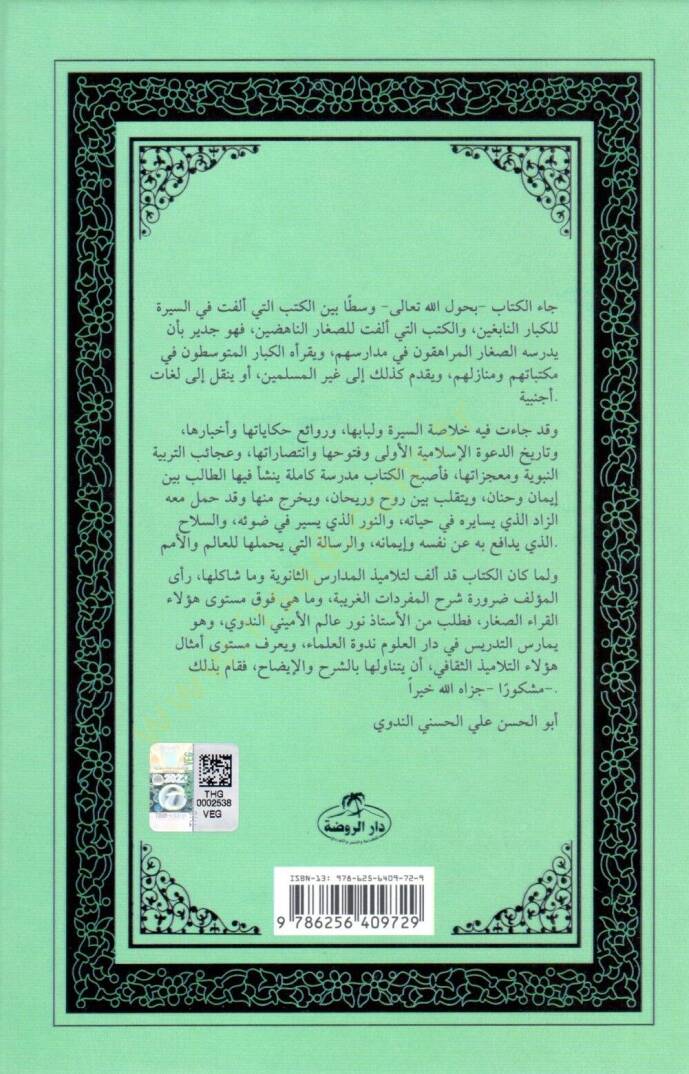 جاء الكتاب -بحول الله تعالى- وسطًا بين الكتب التي ألفت في السيرة
للكبار النابغين، والكتب التي ألفت للصغار الناهضين، فهو جدير بأن
يدرسه الصغار المراهقون في مدارسهم، ويقرأه الكبار المتوسطون في
مكتباتهم ومنازلهم، ويقدم كذلك إلى غير المسلمين، أو ينقل إلى لغات
.أجنبية
وقد جاءت فيه خلاصة السيرة ولبابها، وروائع حكاياتها وأخبارها،
وتاريخ الدعوة الإسلامية الأولى وفتوحها وانتصاراتها، وعجائب التربية
النبوية ومعجزاتها، فأصبح الكتاب مدرسة كاملة ينشأ فيها الطالب بين
إيمان وحنان، ويتقلب بين روح وريحان، ويخرج منها وقد حمل معه
الزاد الذي يسايره في حياته، والنور الذي يسير في ضوئه، والسلاح
.الذي يدافع به عن نفسه وإيمانه، والرسالة التي يحملها للعالم والأمم
ولما كان الكتاب قد ألف لتلاميذ المدارس الثانوية وما شاكلها، رأى
المؤلف ضرورة شرح المفردات الغريبة، وما هي فوق مستوى هؤلاء
القراء الصغار، فطلب من الأستاذ نور عالم الأميني الندوي، وهو
يمارس التدريس في دار العلوم ندوة العلماء، ويعرف مستوى أمثال
هؤلاء التلاميذ الثقافي، أن يتناولها بالشرح والإيضاح، فقام بذلك
.-مشكورًا -جزاه الله خيراً
أبو الحسن علي الحسني الندوي
2022
THG
0002538
VEG
دار الروضة
ISBN-13: 978-625-6409-72-9
9 786256 409729